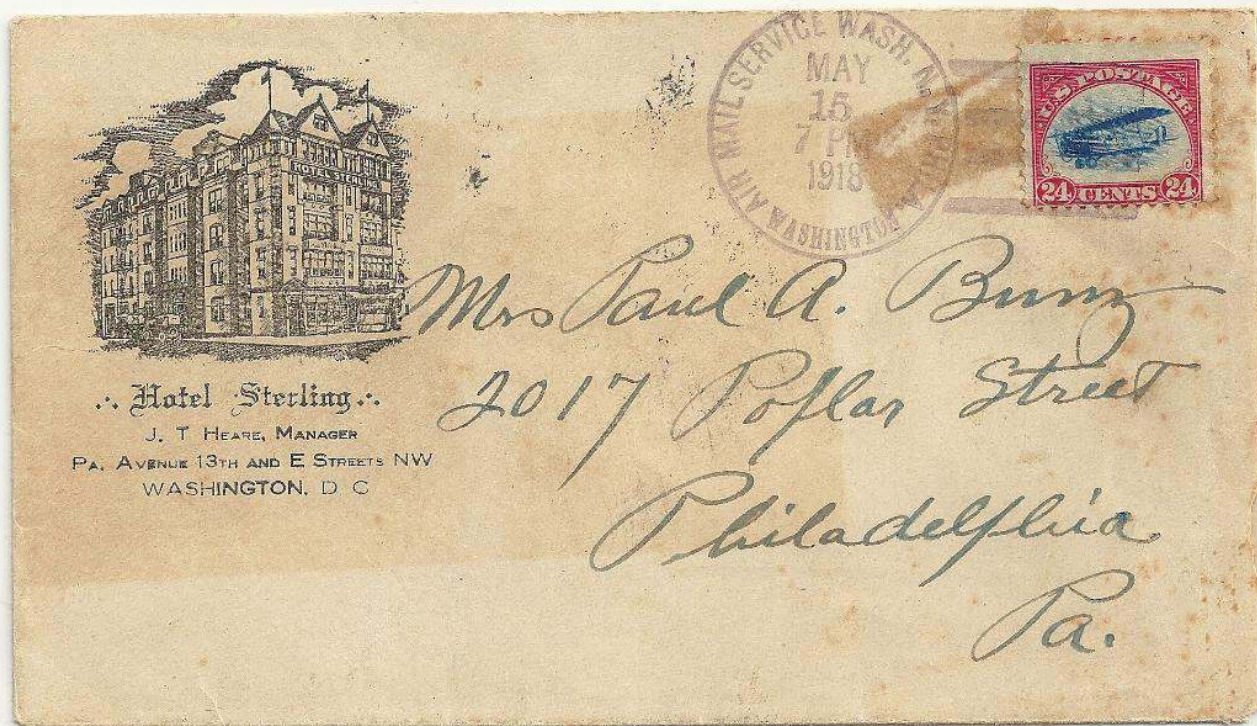 HOTEL STERLING
Hotel Sterling
J. T HEARE, MANAGER
PA. AVENUE 13TH AND E STREETS NW
WASHINGTON, D C
AIR MAIL SERVICE WASH. N.Y. PHILA.
MAY
15
7 PM
1918
WASHINGTON
U.S. POSTAGE
24 CENTS 24
Mrs Paul A.
2017 Poplar Street
Philadelphia
Pa.